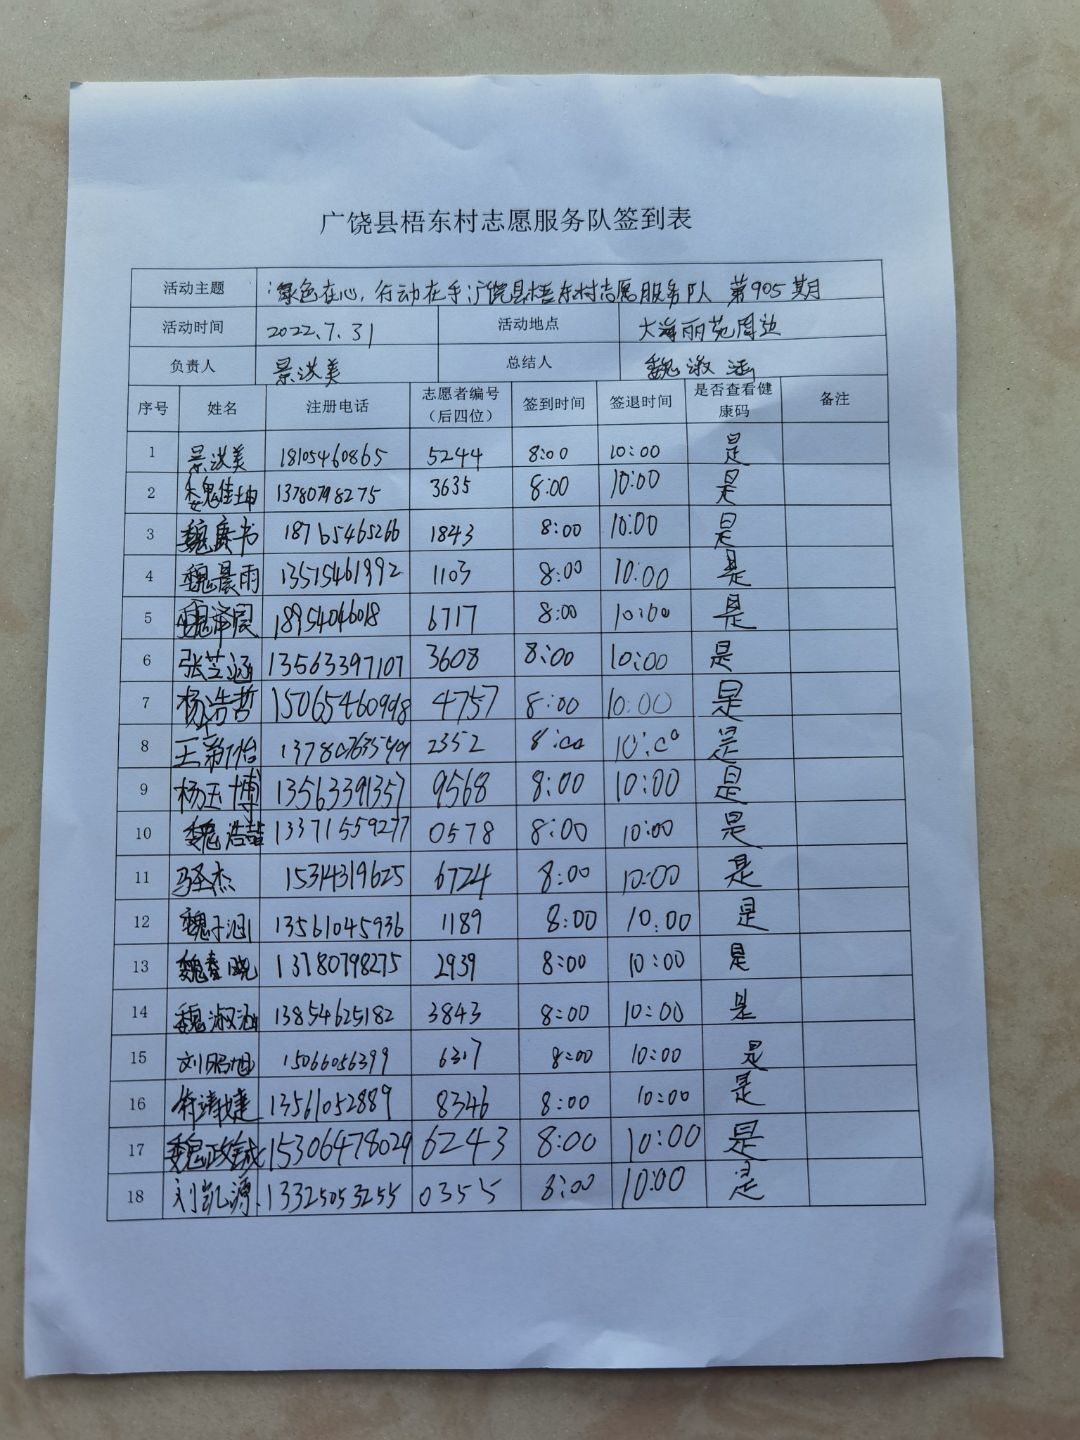 广饶县梧东村志愿服务队签到表
活动主题 绿色在心,行动在手:广饶县梧东村志愿服务队 第905期
活动时间 2022.7.31 活动地点 大海丽苑周边
负责人 景洪美 总结人 魏淑涵
序号 姓名 注册电话 志愿者编号(后四位) 签到时间 签退时间 是否查看健康码 备注
1 景洪美 18105460865 5244 8:00 10:00 是
2 魏佳坤 13780798275 3635 8:00 10:00 是
3 魏庚书 18765465266 1843 8:00 10:00 是
4 魏晨雨 13515461992 1103 8:00 10:00 是
5 魏泽宸 18954046018 6717 8:00 10:00 是
6 张芝涵 13563397107 3608 8:00 10:00 是
7 杨浩哲 15065460998 4757 8:00 10:00 是
8 王新怡 2352 8:00 10:00 是
9 杨玉博 13563391357 9568 8:00 10:00 是
10 魏浩喆 13371559277 0578 8:00 10:00 是
11 马圣杰 15314319625 6724 8:00 10:00 是
12 魏子涵 13561045936 1189 8:00 10:00 是
13 魏春晓 13780798275 2939 8:00 10:00 是
14 魏淑涵 13854625182 3843 8:00 10:00 是
15 刘明旭 15066056399 6317 8:00 10:00 是
16 13561052889 8346 8:00 10:00 是
17 魏政铖 15306478029 6243 8:00 10:00 是
18 刘凯源 13325053255 0355 8:00 10:00 是